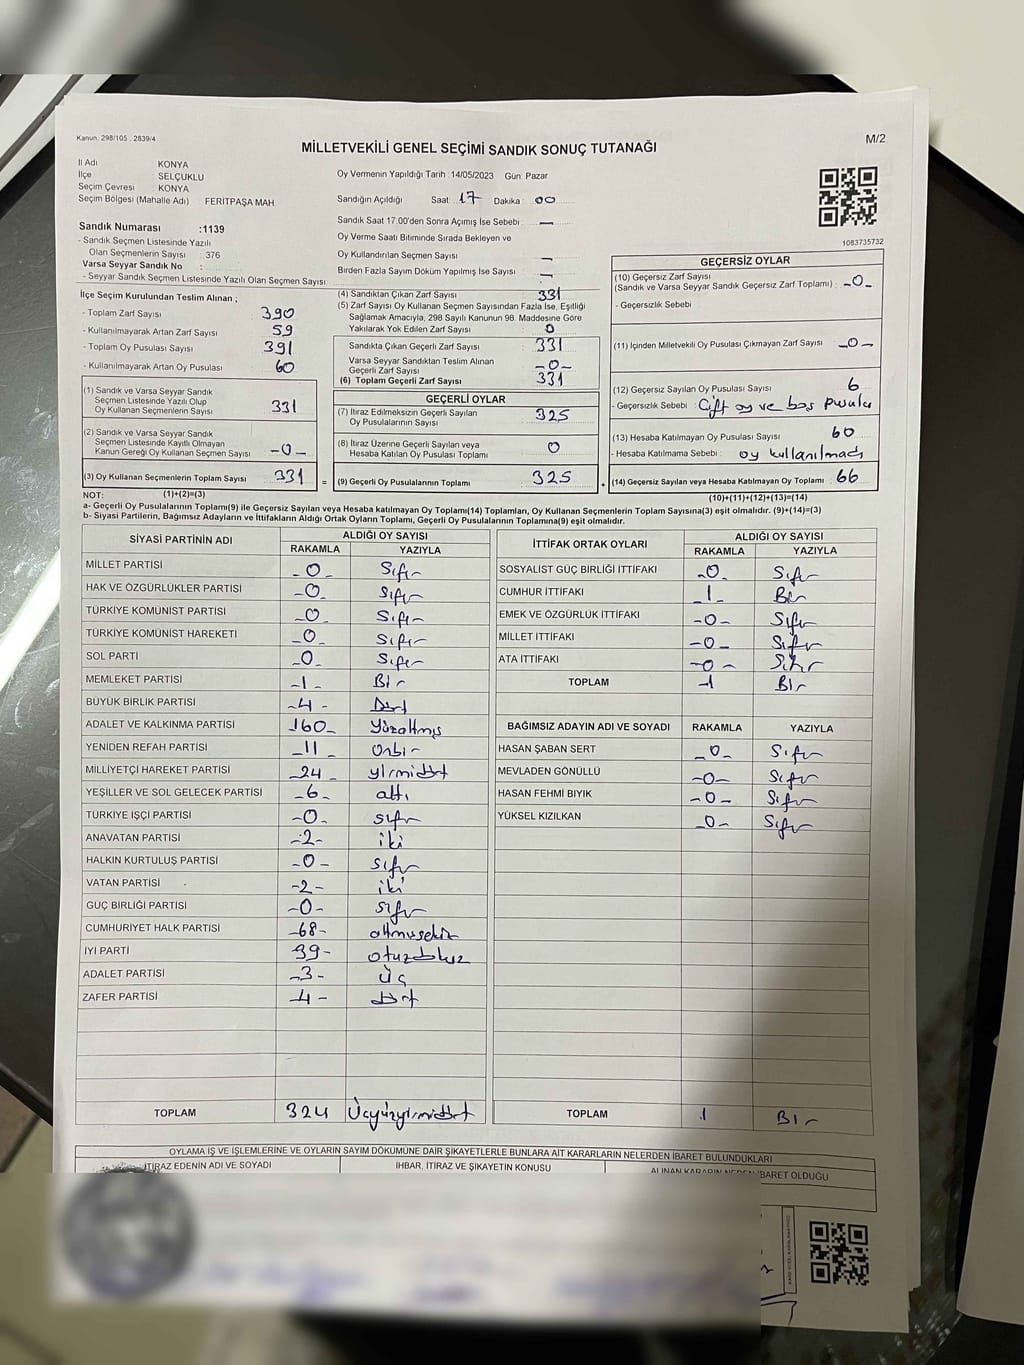 Kanun, 298/105 . 2839/4
M/2
MİLLETVEKİLİ GENEL SEÇİMİ SANDIK SONUÇ TUTANAĞI
İl Adı KONYA
İlçe SELÇUKLU
Seçim Çevresi : KONYA
Seçim Bölgesi (Mahalle Adı) FERİTPAŞA MAH
Oy Vermenin Yapıldığı Tarih : 14/05/2023 Gün: Pazar
Sandığın Açıldığı Saat : 17 Dakika : 00
Sandık Saat 17.00'den Sonra Açımış İse Sebebi : —
Oy Verme Saati Bitiminde Sırada Bekleyen ve
Oy Kullandırılan Seçmen Sayısı —
Birden Fazla Sayım Döküm Yapılmış İse Sayısı —
1083735732
Sandık Numarası :1139
- Sandık Seçmen Listesinde Yazılı
Olan Seçmenlerin Sayısı : 376
Varsa Seyyar Sandık No :
- Seyyar Sandık Seçmen Listesinde Yazılı Olan Seçmen Sayısı
İlçe Seçim Kurulundan Teslim Alınan ;
- Toplam Zarf Sayısı 390
- Kullanılmayarak Artan Zarf Sayısı 59
- Toplam Oy Pusulası Sayısı 391
- Kullanılmayarak Artan Oy Pusulası 60
(1) Sandık ve Varsa Seyyar Sandık
Seçmen Listesinde Yazılı Olup
Oy Kullanan Seçmenlerin Sayısı 331
(2) Sandık ve Varsa Seyyar Sandık
Seçmen Listesinde Kayıtlı Olmayan
Kanun Gereği Oy Kullanan Seçmen Sayısı -0-
(3) Oy Kullanan Seçmenlerin Toplam Sayısı 331 =
(4) Sandıktan Çıkan Zarf Sayısı 331
(5) Zarf Sayısı Oy Kullanan Seçmen Sayısından Fazla İse, Eşitliği
Sağlamak Amacıyla, 298 Sayılı Kanunun 98. Maddesine Göre
Yakılarak Yok Edilen Zarf Sayısı 0
Sandıkta Çıkan Geçerli Zarf Sayısı 331
Varsa Seyyar Sandıktan Teslim Alınan
Geçerli Zarf Sayısı -0-
(6) Toplam Geçerli Zarf Sayısı 331
GEÇERLİ OYLAR
(7) İtiraz Edilmeksizin Geçerli Sayılan
Oy Pusulalarının Sayısı 325
(8) İtiraz Üzerine Geçerli Sayılan veya
Hesaba Katılan Oy Pusulası Toplamı 0
(9) Geçerli Oy Pusulalarının Toplamı 325 +
GEÇERSİZ OYLAR
(10) Geçersiz Zarf Sayısı
(Sandık ve Varsa Seyyar Sandık Geçersiz Zarf Toplamı) : -0-
- Geçersizlik Sebebi :
(11) İçinden Milletvekili Oy Pusulası Çıkmayan Zarf Sayısı -0-
(12) Geçersiz Sayılan Oy Pusulası Sayısı 6
- Geçersizlik Sebebi : Çift oy ve boş pusula
(13) Hesaba Katılmayan Oy Pusulası Sayısı 60
- Hesaba Katılmama Sebebi : oy kullanılmadı
(14) Geçersiz Sayılan veya Hesaba Katılmayan Oy Toplamı 66
NOT: (1)+(2)=(3)
(10)+(11)+(12)+(13)=(14)
a- Geçerli Oy Pusulalarının Toplamı(9) ile Geçersiz Sayılan veya Hesaba Katılmayan Oy Toplamı(14) Toplamları, Oy Kullanan Seçmenlerin Toplam Sayısına(3) eşit olmalıdır. (9)+(14)=(3)
b- Siyasi Partilerin, Bağımsız Adayların ve İttifakların Aldığı Ortak Oyların Toplamı, Geçerli Oy Pusulalarının Toplamına(9) eşit olmalıdır.
SİYASİ PARTİNİN ADI ALDIĞI OY SAYISI
RAKAMLA YAZIYLA
MİLLET PARTİSİ -0- Sıfır
HAK VE ÖZGÜRLÜKLER PARTİSİ -0- Sıfır
TÜRKİYE KOMÜNİST PARTİSİ -0- Sıfır
TÜRKİYE KOMÜNİST HAREKETİ -0- Sıfır
SOL PARTİ -0- Sıfır
MEMLEKET PARTİSİ -1- Bir
BÜYÜK BİRLİK PARTİSİ -4- Dört
ADALET VE KALKINMA PARTİSİ 160- yüzaltmış
YENİDEN REFAH PARTİSİ -11- Onbir
MİLLİYETÇİ HAREKET PARTİSİ -24- yirmidört
YEŞİLLER VE SOL GELECEK PARTİSİ -6- altı
TÜRKİYE İŞÇİ PARTİSİ -0- sıfır
ANAVATAN PARTİSİ -2- iki
HALKIN KURTULUŞ PARTİSİ -0- sıfır
VATAN PARTİSİ -2- iki
GÜÇ BİRLİĞİ PARTİSİ -0- sıfır
CUMHURİYET HALK PARTİSİ -68- altmışsekiz
İYİ PARTİ 39- otuzdokuz
ADALET PARTİSİ -3- üç
ZAFER PARTİSİ -4- dört
TOPLAM 324 Üçyüzyirmidört
İTTİFAK ORTAK OYLARI ALDIĞI OY SAYISI
RAKAMLA YAZIYLA
SOSYALİST GÜÇ BİRLİĞİ İTTİFAKI -0- Sıfır
CUMHUR İTTİFAKI -1- Bir
EMEK VE ÖZGÜRLÜK İTTİFAKI -0- Sıfır
MİLLET İTTİFAKI -0- Sıfır
ATA İTTİFAKI -0- Sıfır
TOPLAM -1 Bir
BAĞIMSIZ ADAYIN ADI VE SOYADI RAKAMLA YAZIYLA
HASAN ŞABAN SERT -0- Sıfır
MEVLADEN GÖNÜLLÜ -0- Sıfır
HASAN FEHMİ BIYIK -0- Sıfır
YÜKSEL KIZILKAN -0- Sıfır
TOPLAM 1 Bir
OYLAMA İŞ VE İŞLEMLERİNE VE OYLARIN SAYIM DÖKÜMÜNE DAİR ŞİKAYETLERLE BUNLARA AİT KARARLARIN NELERDEN İBARET BULUNDUKLARI
İTİRAZ EDENİN ADI VE SOYADI İHBAR, İTİRAZ VE ŞİKAYETİN KONUSU ALINAN KARARIN NEDEN İBARET OLDUĞU